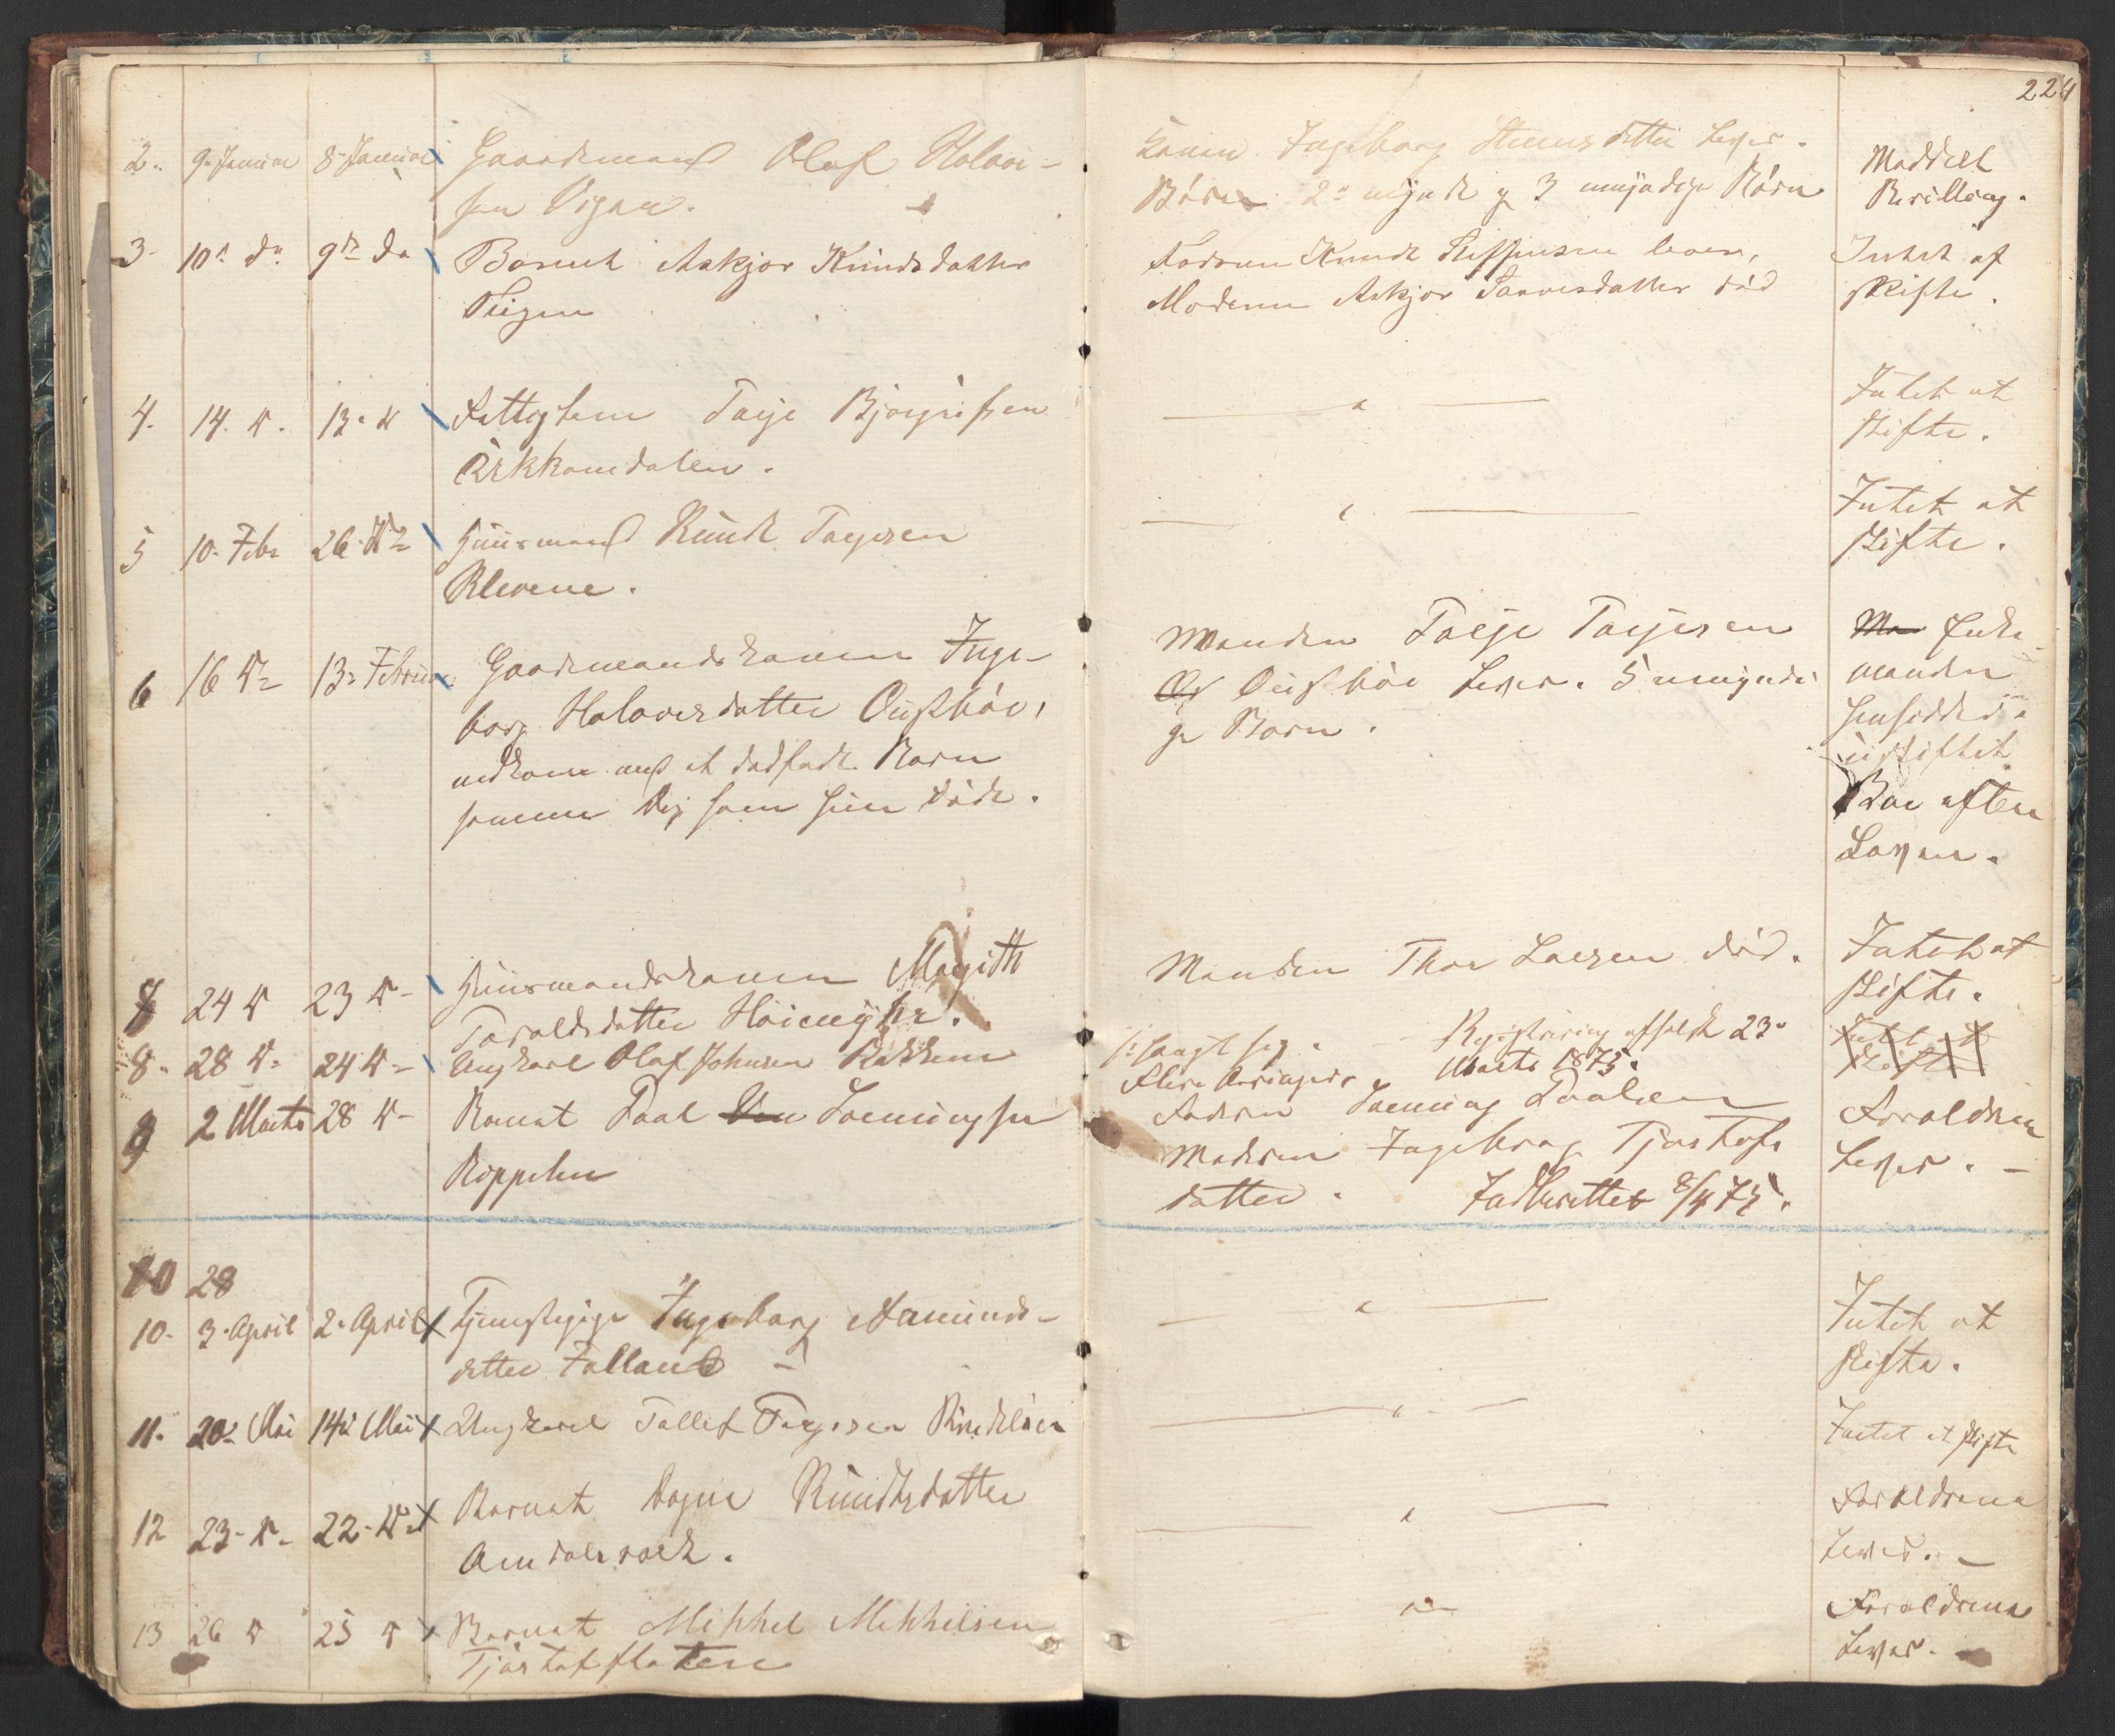 224
2. 9. Januar 8. Januar Gaardmand Olaf Halvor-
sen Vigen.
Konen Ingeborg datter Lever.
Børn 2 mynde og 3 umyndige Børn
Meddelt
Bevilling.
3. 10. do 9de do Barnet Askjer Knudsdatter
Teigen
Faderen Knudt Steffensen lever,
Moderen Askjer Tarvesdatter død
Intet at
skifte.
4. 14. d. 13. d Fattiglem Tarje Bjørgufsen
" Intet at
skifte.
5 10. Febr 26. Huusmand Knudt Tarjesen
Klevene.
" Intet at
skifte.
6 16 d. 13. Februar Gaardmandskonen Inge-
borg Halvorsdatter
nedkom med et dødfødt Barn
samme Dag som hun døde.
Manden Tarje Tarjesen
Lever. 5 umyndi
ge Børn.
Enke
manden
hensidder i
uskiftet
Boe efter
Loven.
7 24 d 23 d- Huusmandskonen Margith
Taraldsdatter Høimyhr.
Manden Thor Larsen død.
Intet at
skifte.
8. 28 d. 24 d- Ungkarl Olaf Johnsen Bakken
Flere Arvinger.
Registrering afholdt 23.
Marts 1875.
Intet at
skifte
9 2 Marts 28 d- Barnet Paal Sveningsen
Koppelen
Faderen Svening Paalsen
Moderen Ingeborg Tjøstofs
datter. Indberettet 8/4 75.
Forældrene
Lever. -
10 28
10. 3. April 2. April Tjenestepige Ingeborg Aamunds-
datter Falland -
" Intet at
skifte.
11. 20. Mai 14. Mai Ungkarl Tallef Tarjesen
" Intet at skifte
12 23. d. 22. d. Barnet Dagne Knudtsdatter
Amdalsværk.
" Forældrene
Lever. -
13 26 d 25 d Barnet Mikkel Mikkelsen
Tjøstofflaten
" Forældrene
Lever. -